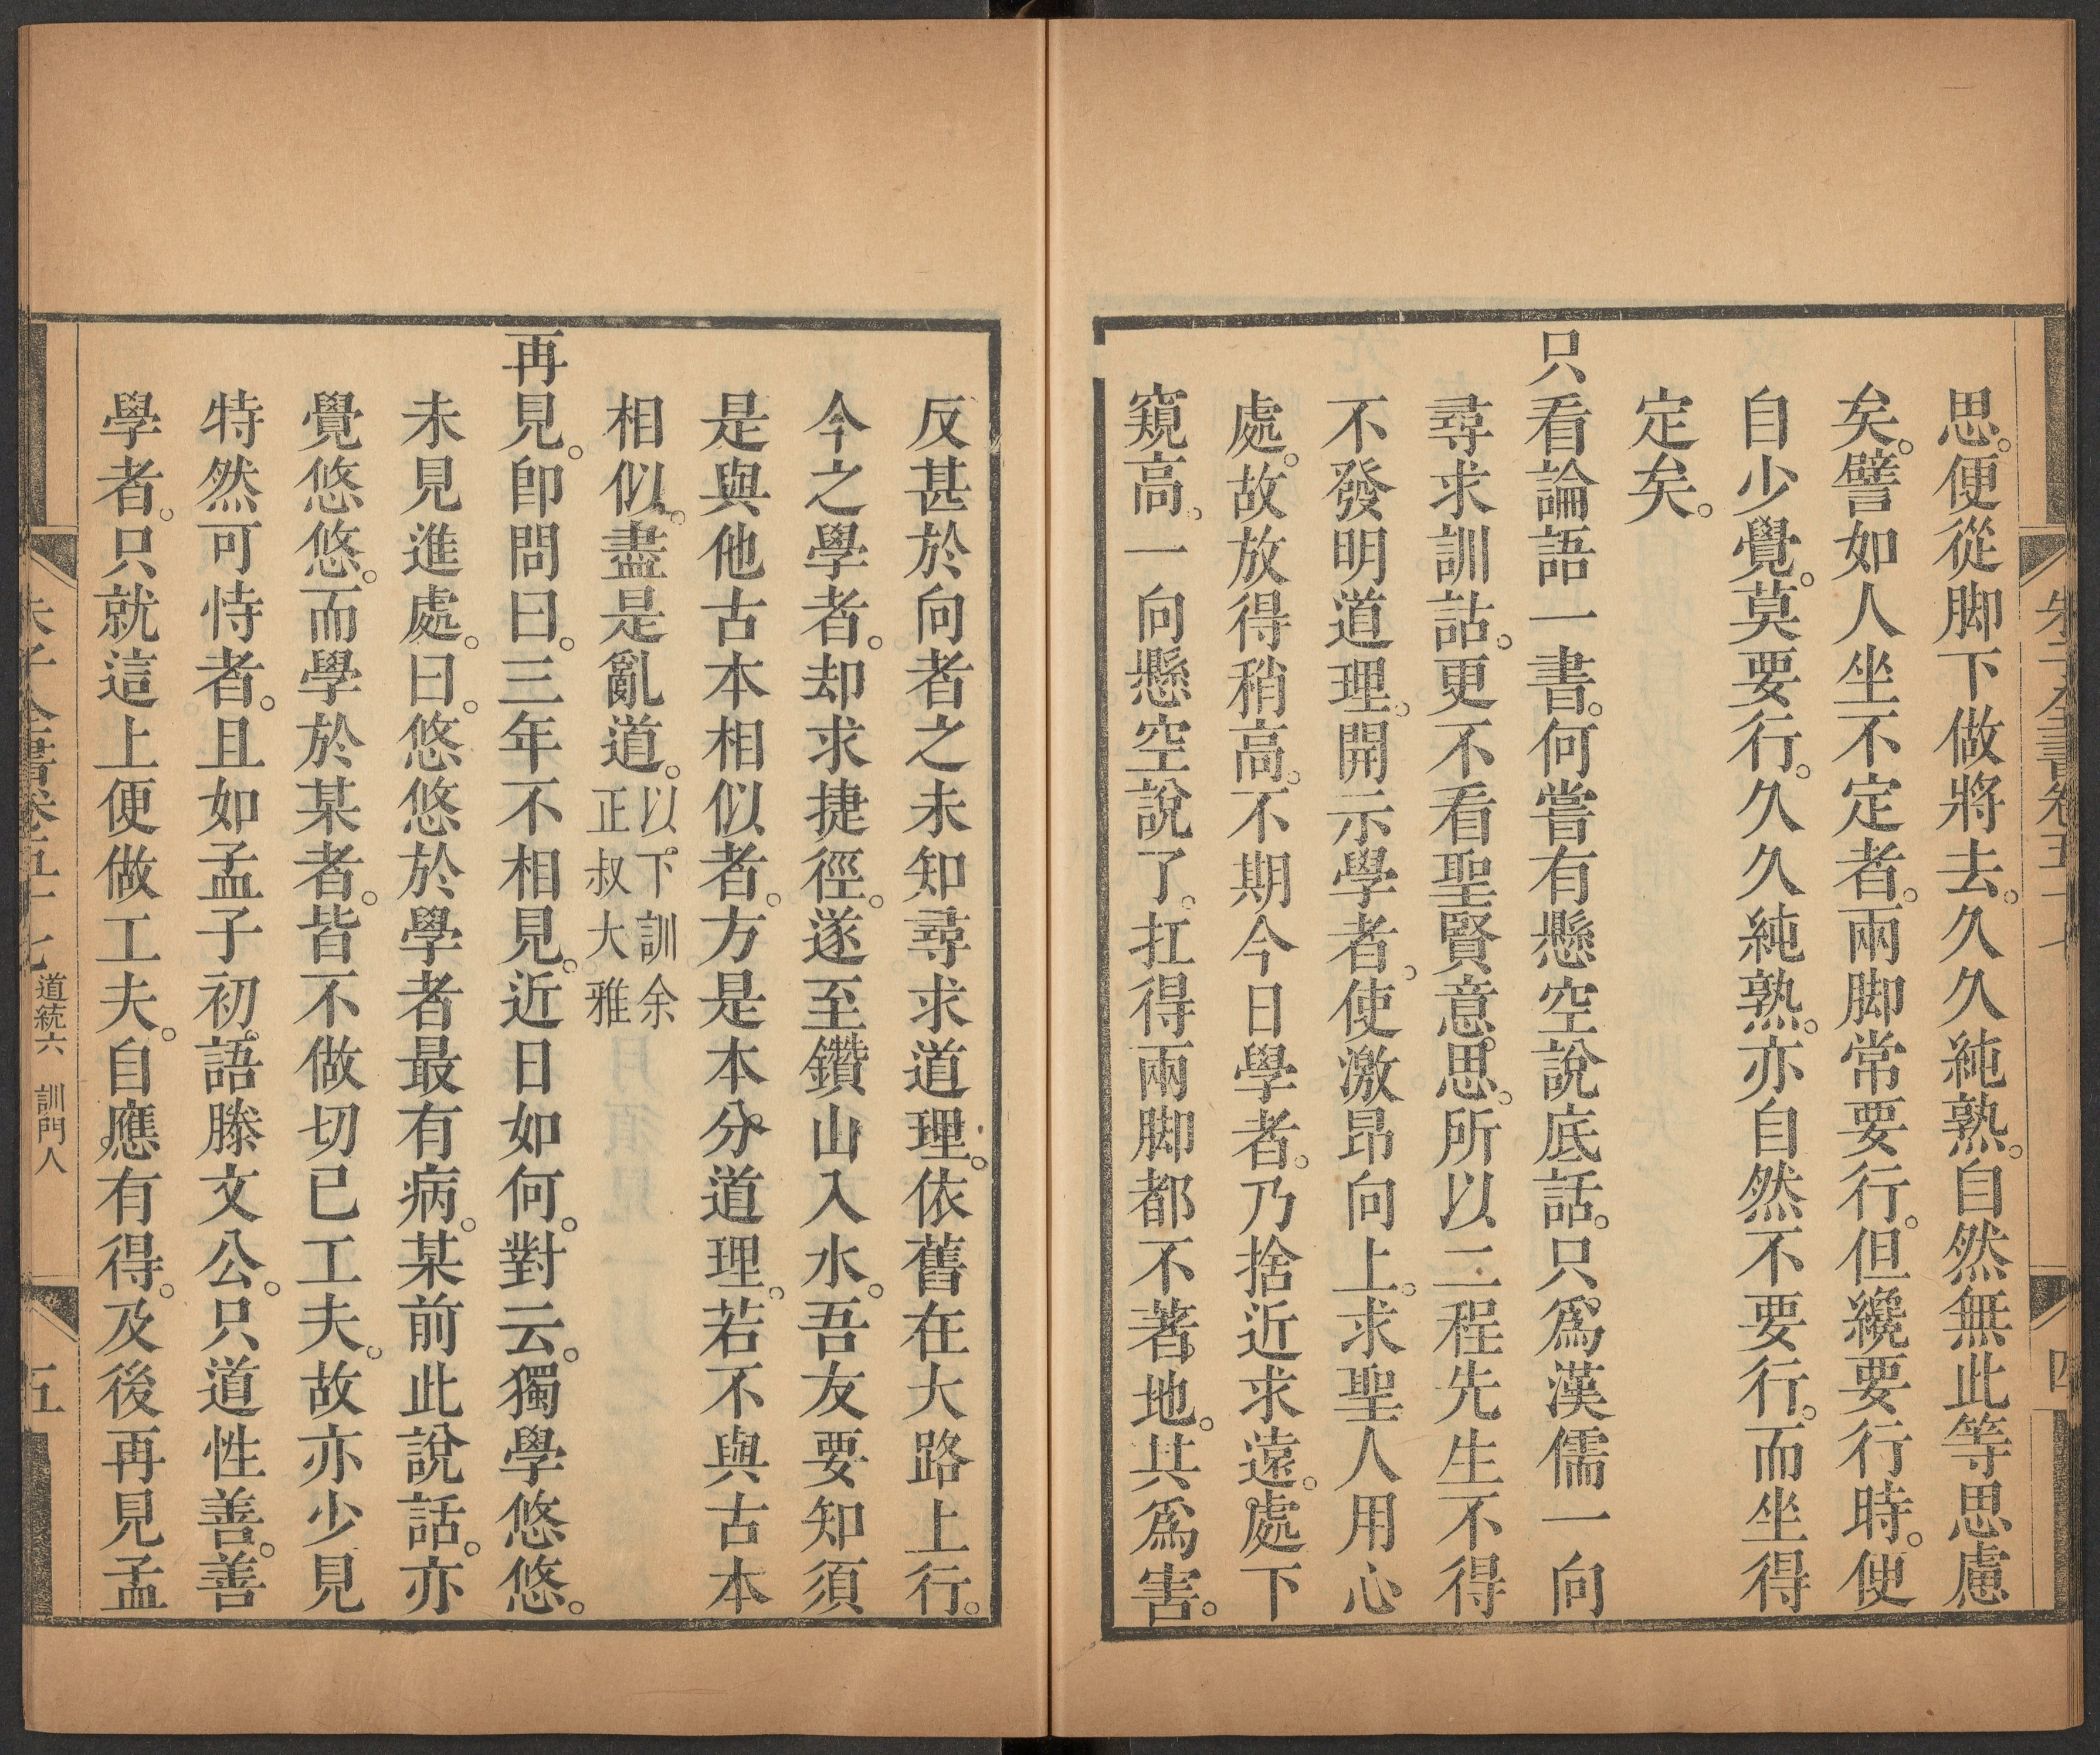 思。便從脚下做將去。久久純熟。自然無此等思慮
矣。譬如人坐不定者。兩脚常要行。但纔要行時。便
自少覺。莫要行。久久純熟。亦自然不要行。而坐得
定矣。
只看論語一書。何嘗有懸空說底話。只爲漢儒一向
尋求訓詁。更不看聖賢意思。所以二程先生不得
不發明道理。開示學者。使激昂向上。求聖人用心
處。故放得稍高。不期今日學者。乃捨近求遠。處下
窺高。一向懸空說了。扛得兩脚都不著地。其爲害。
反甚於向者之未知尋求道理。依舊在大路上行。
今之學者。却求捷徑。遂至鑽山入水。吾友要知須
是與他古本相似者。方是本分道理。若不與古本
相似。盡是亂道。以下訓余
正叔大雅
再見。卽問曰。三年不相見。近日如何。對云。獨學悠悠。
未見進處。曰。悠悠於學者最有病。某前此說話。亦
覺悠悠。而學於某者。皆不做切已工夫。故亦少見
特然可恃者。且如孟子初語滕文公。只道性善。善
學者。只就這上便做工夫。自應有得。及後再見孟
道統六 訓門人
五